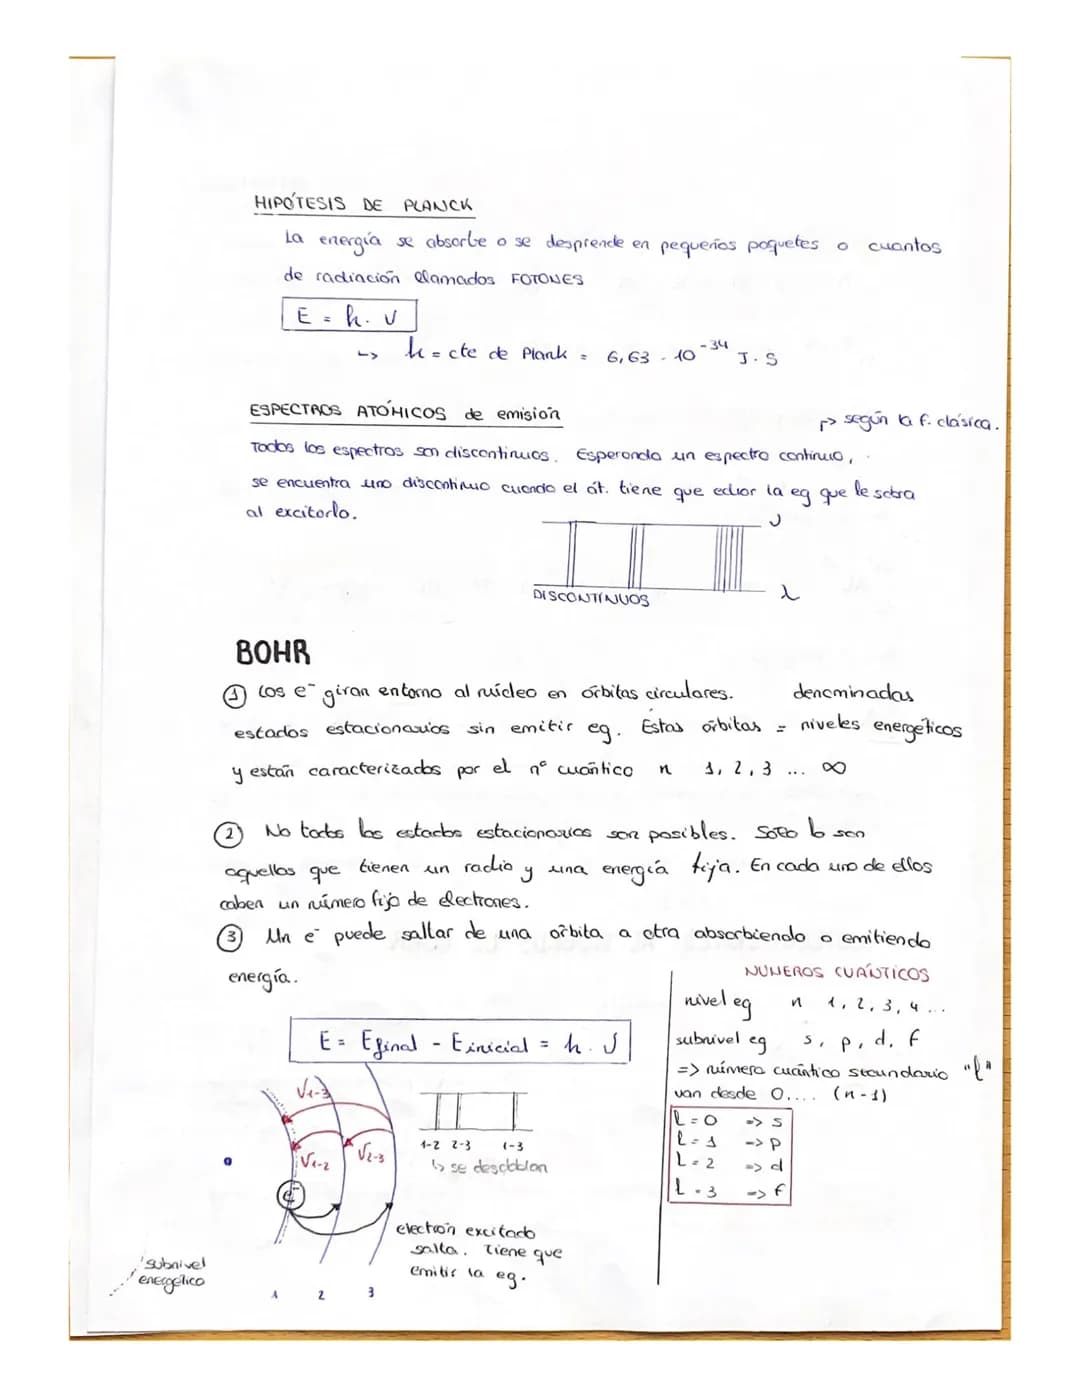 HIPÓTESIS DE PLANCK
La energía se absorbe o se desprende en pequeños paquetes o cuantos
de radiación llamados FOTONES
E = h . ν
↳ h = cte de Plank = 6,63 . 10⁻³⁴ J . S
ESPECTROS ATÓMICOS de emisión
↱ según la f. clásica.
Todos los espectros son discontinuos. Esperando un espectro continuo,
se encuentra uno discontinuo cuando el át. tiene que echar la eg que le sobra
al excitarlo.
ν
DISCONTÍNUOS
λ
BOHR
① Los e⁻ giran entorno al núcleo en órbitas circulares. denominadas
estados estacionarios sin emitir eg. Estas órbitas = niveles energéticos
y están caracterizados por el nº cuántico n 1, 2, 3 ... ∞
② No todos los estados estacionarios son posibles. Solo lo son
aquellos que tienen un radio y una energía fija. En cada uno de ellos
caben un número fijo de electrones.
③ Un e⁻ puede saltar de una órbita a otra absorbiendo o emitiendo
energía.
E = Efinal - Einicial = h . ν
ν1-3
ν1-2
ν2-3
e⁻
1-2 2-3 1-3
↳ se desdoblan
electrón excitado
salta. Tiene que
emitir la eg.
subnivel
energético
1 2 3
NUMEROS CUÁNTICOS
nivel eg n 1, 2, 3, 4 ...
subnivel eg s, p, d, f
=> número cuántico secundario "l"
van desde 0.... (n-1)
l = 0 => s
l = 1 => p
l = 2 => d
l = 3 => f